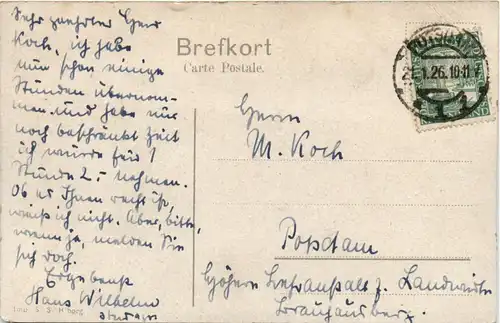 Sehr geehrter Herr
Koch, ich habe
nun schon einige
Stunden übernom-
men und habe nur
noch beschränkt Zeit
ich würde für 1
Stunde 2,- nehmen.
Ob es Ihnen recht ist,
weiß ich nicht. Aber, bitte,
wenn ja, melden Sie
sich doch.
Ergebenst
Hans Wilhelm
Imp. S. S. H'borg
Brefkort
Carte Postale.
1.26.10-11
Herrn
M. Koch
Potsdam
Höhere Lehranstalt z. Landwirte